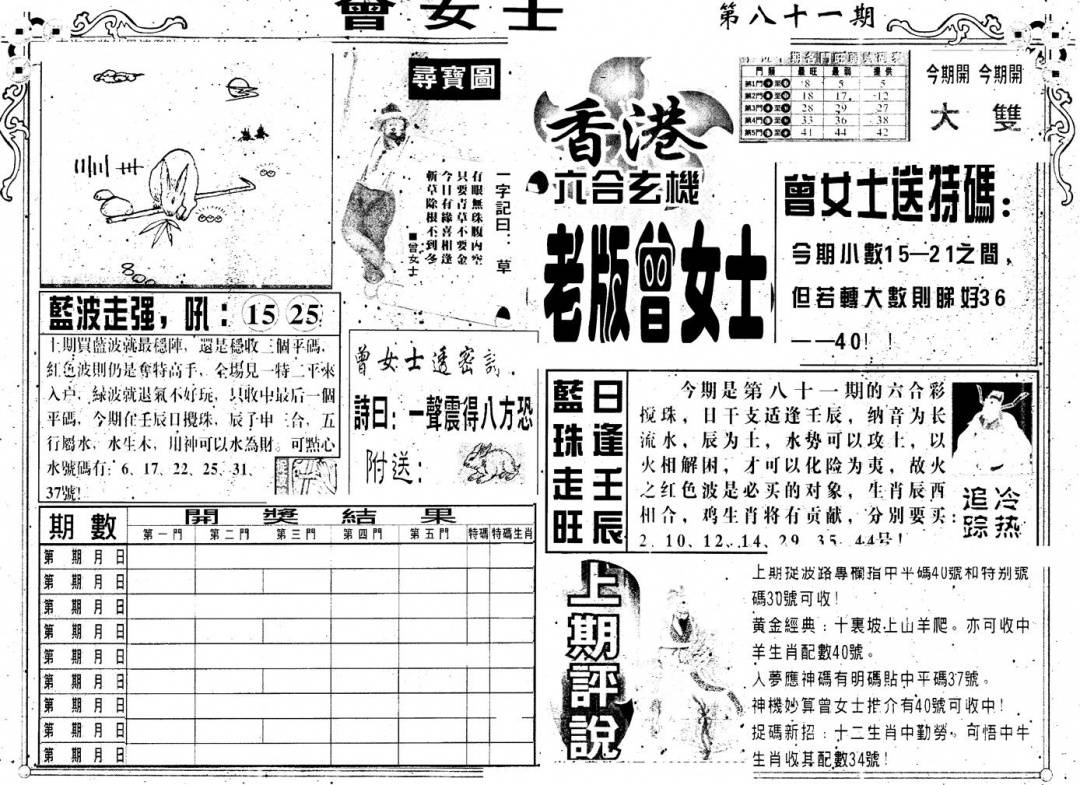 曾女士
第八十一期
尋寶圖
一字記曰：草
有眼無珠腹内空
只要青草不要金
今日有緣喜相逢
斬草除根不到冬
■曾女士
藍波走强，吼：15 25
上期買藍波就最穩陣，還是穩收三個平碼，
紅色波則仍是奪特高手，全場見一特二平來
入户，緑波就退氣不好玩，只收中最后一個
平碼，今期在壬辰日攪珠，辰子申三合，五
行屬水，水生木，用神可以水為財。可點心
水號碼有：6、17、22、25、31、
37號！
曾女士透密訊
詩曰：一聲震得八方恐
附送：
期數 開獎結果
第一門 第二門 第三門 第四門 第五門 特碼 特碼生肖
第 期 月 日
第 期 月 日
第 期 月 日
第 期 月 日
第 期 月 日
第 期 月 日
第 期 月 日
第 期 月 日
第 期 月 日
香港
六合玄機
老版曾女士
門類 最旺 最弱 提供
第1門 至 8 5 5
第2門 至 18 17 12
第3門 至 28 29 27
第4門 至 33 36 38
第5門 至 41 44 42
今期開 今期開
大 雙
曾女士送特碼：
今期小數15—21之間，
但若轉大數則睇好36
——40！！
日逢壬辰
藍珠走旺
今期是第八十一期的六合彩
搅珠，日干支适逢壬辰，纳音为长
流水，辰为土，水勢可以攻土，以
火相解困，才可以化险为夷，故火
之红色波是必买的对象，生肖辰酉
相合，鸡生肖将有贡献，分别要买：
2、10、12、14、29、35、44号！
冷热
追踪
上期評說
上期捉波路專欄指中平碼40號和特别號
碼30號可收！
黄金經典：十裏坡上山羊爬。亦可收中
羊生肖配數40號。
人夢應神碼有明碼貼中平碼37號。
神機妙算曾女士推介有40號可收中！
捉碼新招：十二生肖中勤勞，可悟中牛
生肖收其配數34號！